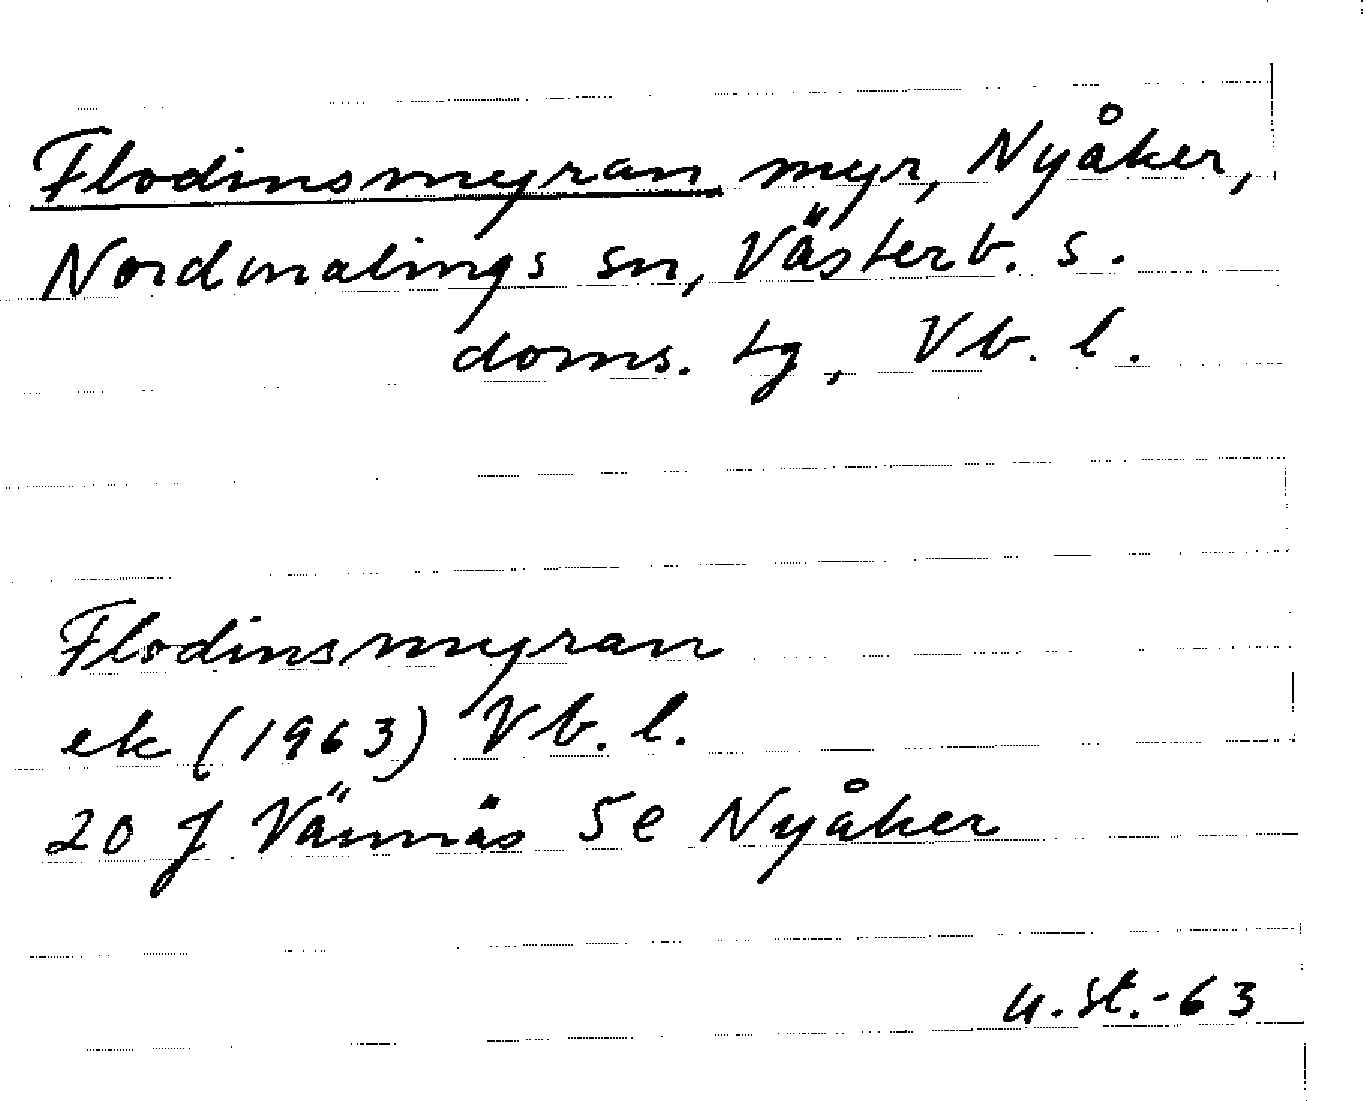 Flodinsmyran myr, Nyåker,
Nordmalings sn, Västerb. s.
doms. tg, Vb. l.
Flodinsmyran
ek (1963) Vb. l.
20 J Vännäs 5e Nyåker
u.st.-63